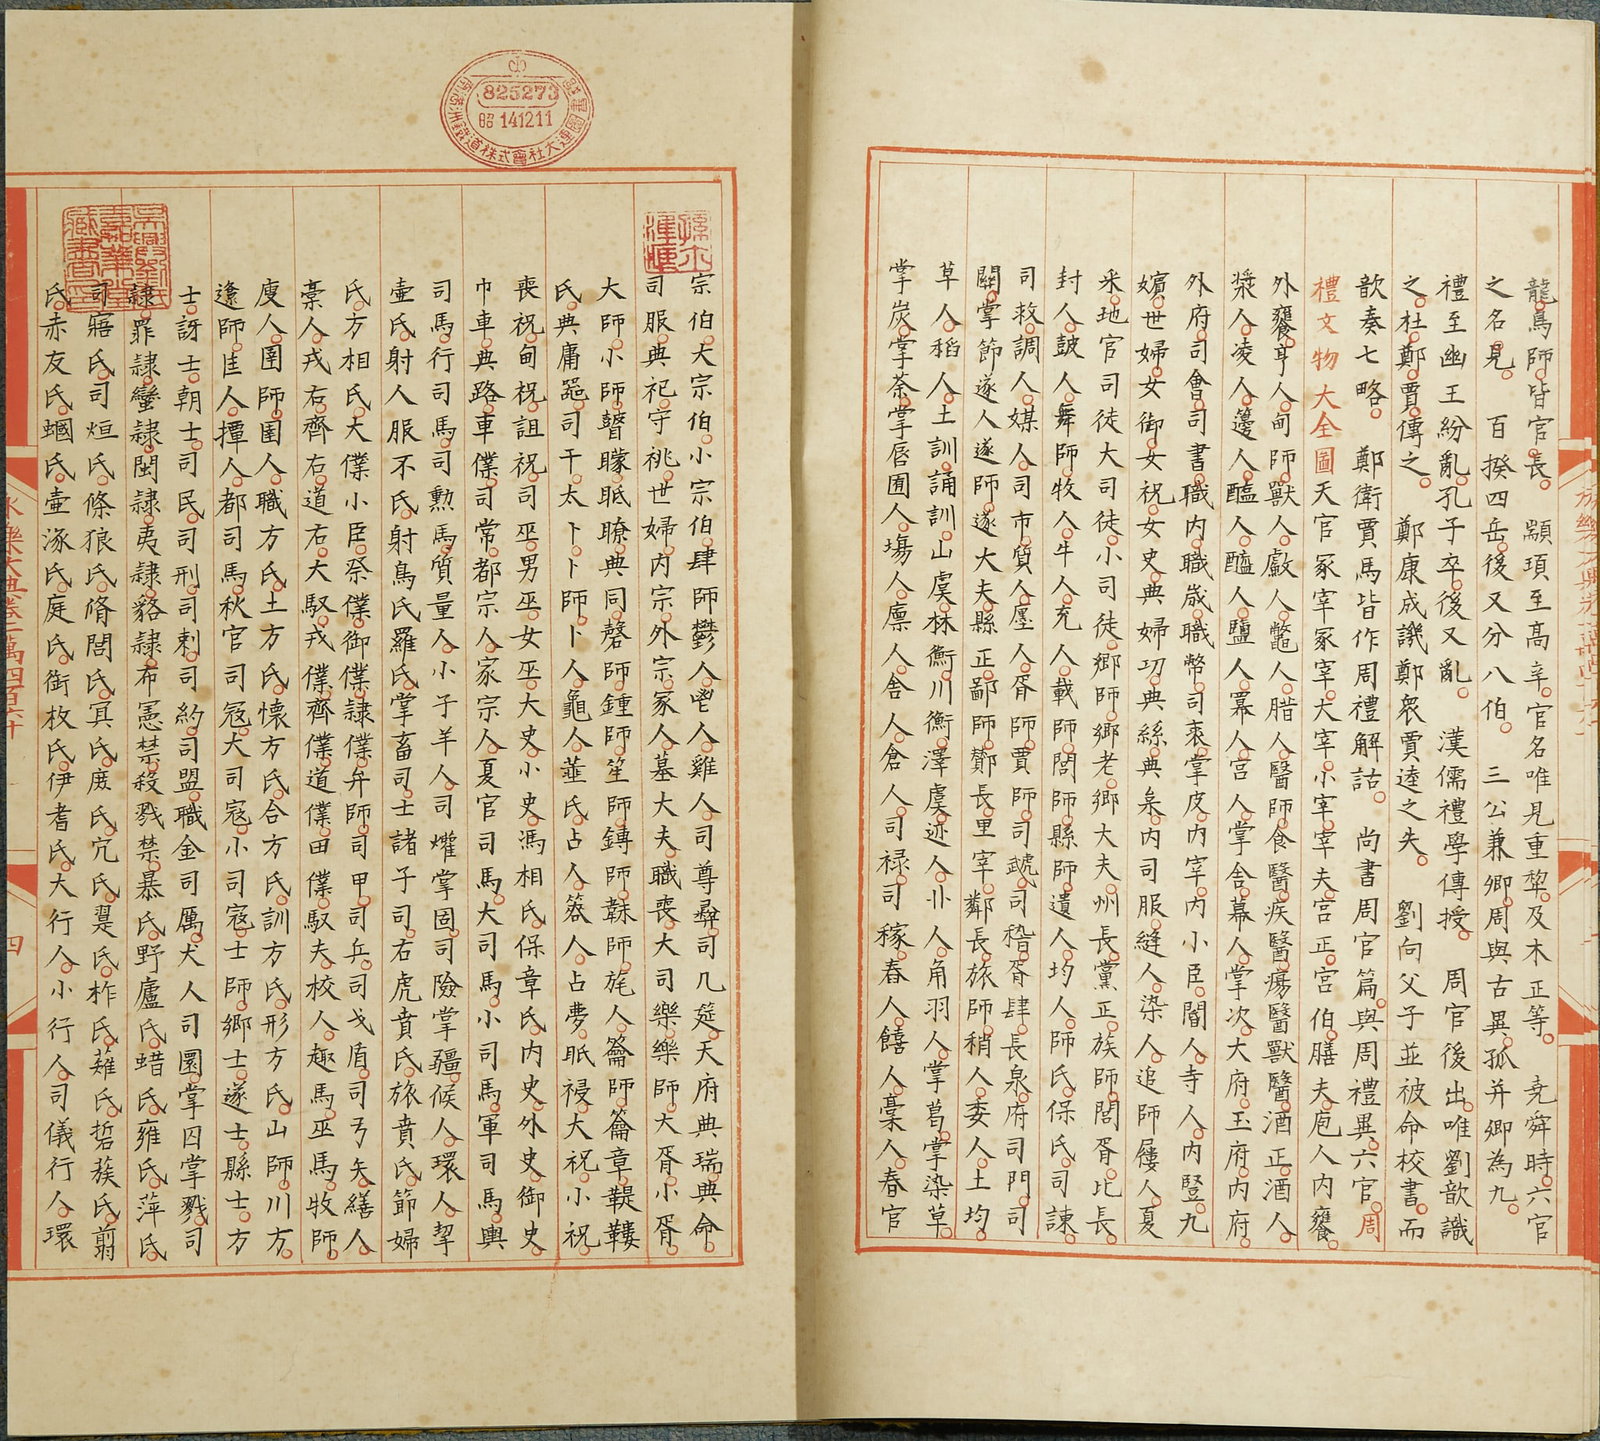 龍鳥師。皆官長。 顓頊至高辛。官名唯見重犂。及木正等。 堯舜時。六官
之名見。 百揆四岳。後又分八伯。 三公兼卿。周與古異。孤并卿為九。
禮至幽王紛亂。孔子卒。後又亂。 漢儒禮學傳授。 周官後出。唯劉歆識
之。杜鄭賈傳之。 鄭康成譏鄭衆賈逵之失。 劉向父子並被命校書。而
歆奏七略。 鄭衛賈馬皆作周禮解詁。 尚書周官篇。與周禮異。六官。周
禮文物大全圖天官冢宰冢宰。大宰。小宰。宰夫。宮正。宮伯。膳夫。庖人内饔。
外饔。亨人。甸師。獸人。䱷人。鼈人。腊人。醫師。食醫。疾醫。瘍醫。獸醫。酒正。酒人。
漿人。凌人。籩人。醢人。醯人。鹽人。冪人。宮人。掌舍。幕人。掌次。大府。玉府。内府。
外府。司會。司書。職内。職歳。職幣。司裘。掌皮。内宰。内小臣。閽人。寺人。内豎。九
嬪。世婦。女御。女祝。女史。典婦功。典絲。典枲。内司服。縫人。染人。追師。屨人。夏
采。地官司徒大司徒。小司徒。鄉師。鄉老。鄉大夫。州長。黨正。族師。閭胥。比長。
封人。鼓人。舞師。牧人。牛人。充人。載師。閭師。縣師。遺人。均人。師氏。保氏。司諫。
司救。調人。媒人。司市。質人。廛人。胥師。賈師。司虣。司稽。胥。肆長。泉府。司門。司
關。掌節。遂人。遂師。遂大夫。縣正。鄙師。酇長。里宰。鄰長。旅師。稍人。委人。土均。
草人。稻人。土訓。誦訓。山虞。林衡。川衡。澤虞。迹人。卝人。角羽人。掌葛。掌染草。
掌炭。掌荼。掌唇。囿人。塲人。廩人。舍人。倉人。司禄。司稼。舂人。饎人。槀人。春官
宗伯。大宗伯。小宗伯。肆師。鬱人。鬯人。雞人。司尊彝。司几筵。天府。典瑞。典命。
司服。典祀。守祧。世婦。内宗。外宗。冢人。墓大夫。職喪。大司樂。樂師。大胥。小胥。
大師。小師。瞽矇。眡瞭。典同。磬師。鍾師。笙師。鏄師。韎師。旄人。籥師。籥章。鞮鞻
氏。典庸器。司干。太卜。卜師。卜人。龜人。菙氏。占人。簭人。占夢。眡祲。大祝。小祝。
喪祝。甸祝。詛祝。司巫。男巫。女巫。大史。小史。馮相氏。保章氏。内史。外史。御史。
巾車。典路。車僕。司常。都宗人。家宗人。夏官司馬。大司馬。小司馬。軍司馬。輿
司馬。行司馬。司勲。馬質。量人。小子。羊人。司爟。掌固。司險。掌疆。候人。環人。挈
壷氏。射人。服不氏。射鳥氏。羅氏。掌畜。司士。諸子。司右。虎賁氏。旅賁氏。節婦
氏。方相氏。大僕。小臣。祭僕。御僕。隷僕。弁師。司甲。司兵。司戈盾。司弓矢。繕人。
槀人。戎右。齊右。道右。大馭。戎僕。齊僕。道僕。田僕。馭夫。校人。趣馬。巫馬。牧師。
廋人。圉師。圉人。職方氏。土方氏。懷方氏。合方氏。訓方氏。形方氏。山師。川方。
邍師。匡人。撢人。都司馬。秋官司冦。大司冦。小司冦。士師。鄉士。遂士。縣士。方
士。訝士。朝士。司民。司刑。司刺。司約。司盟。職金。司厲。犬人。司圜。掌囚。掌戮。司
隷。罪隷。蠻隷。閩隷。夷隷。貉隷。布憲。禁殺戮。禁暴氏。野廬氏。蜡氏。雍氏。萍氏。
司寤氏。司烜氏。條狼氏。脩閭氏。冥氏。庶氏。穴氏。翨氏。柞氏。薙氏。硩蔟氏。翦
氏。赤友氏。蟈氏。壷涿氏。庭氏。銜枚氏。伊耆氏。大行人。小行人。司儀。行人。環
永樂大典卷一萬四百六十
四
825273
昭 141211
南滿洲鐵道株式會社大連圖書館
吳興劉氏嘉業堂藏書印